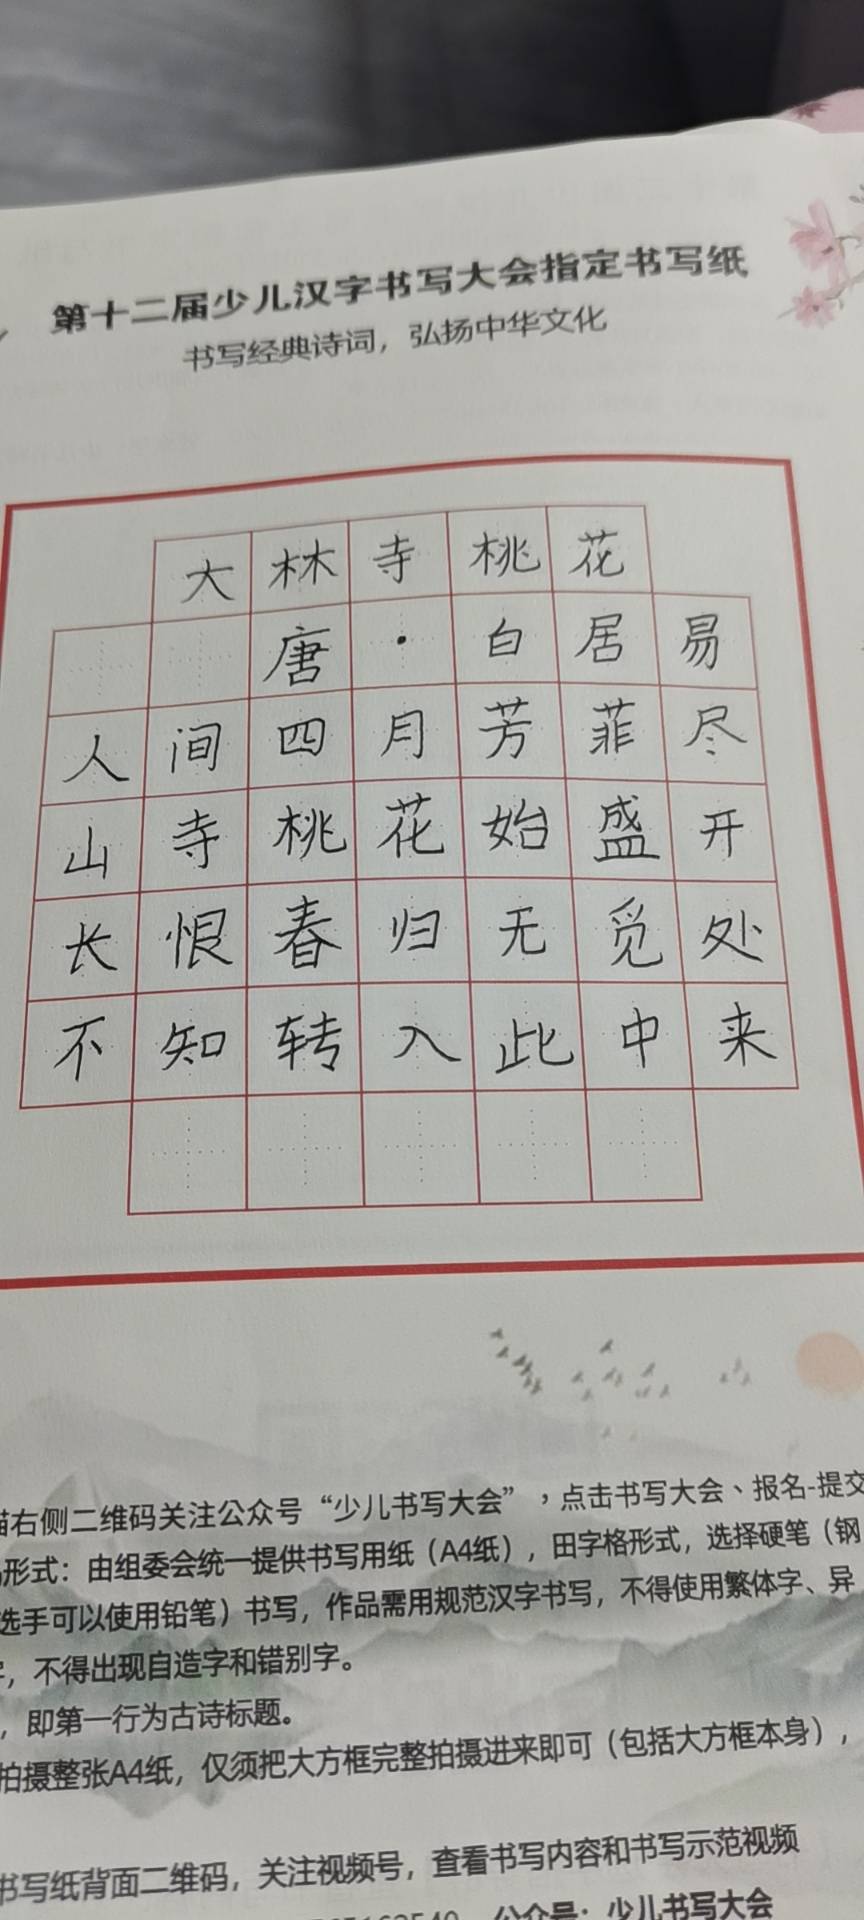 第十二届少儿汉字书写大会指定书写纸
书写经典诗词，弘扬中华文化
大林寺桃花
唐·白居易
人间四月芳菲尽
山寺桃花始盛开
长恨春归无觅处
不知转入此中来
右侧二维码关注公众号“少儿书写大会”，点击书写大会、报名-提交
形式：由组委会统一提供书写用纸（A4纸），田字格形式，选择硬笔（钢
选手可以使用铅笔）书写，作品需用规范汉字书写，不得使用繁体字、异
，不得出现自造字和错别字。
，即第一行为古诗标题。
拍摄整张A4纸，仅须把大方框完整拍摄进来即可（包括大方框本身），
书写纸背面二维码，关注视频号，查看书写内容和书写示范视频
公众号：少儿书写大会